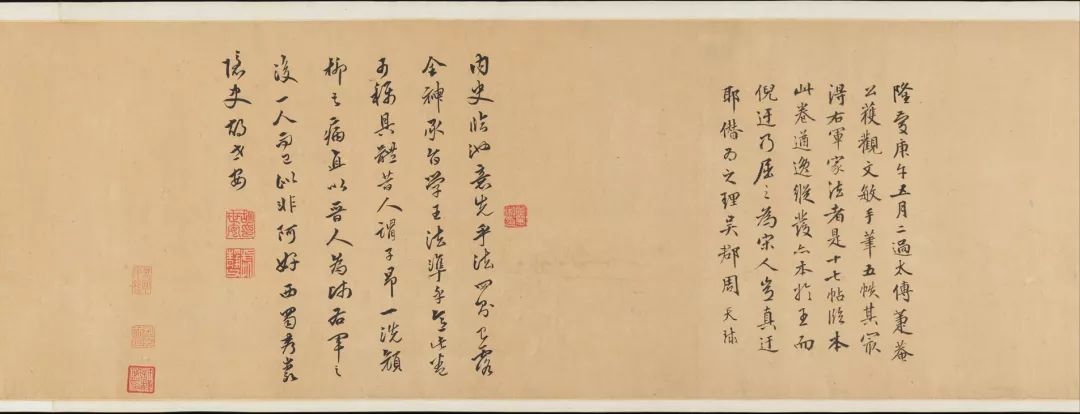 隆慶庚午五月二過太傅蒹菴
公獲觀文敏手筆五帙其最
得右軍家法者是十七帖臨本
此卷遒逸縱發亦本於王而
倪迂乃屈之為宋人豈真迂
耶僭為之理吳郡周天球
內史臨池意先乎法
全神承旨學王法準
可稱具體昔人謂子昂一洗顏
柳之病直以晉人為師右軍之
後一人而已似非阿好西蜀
隱史